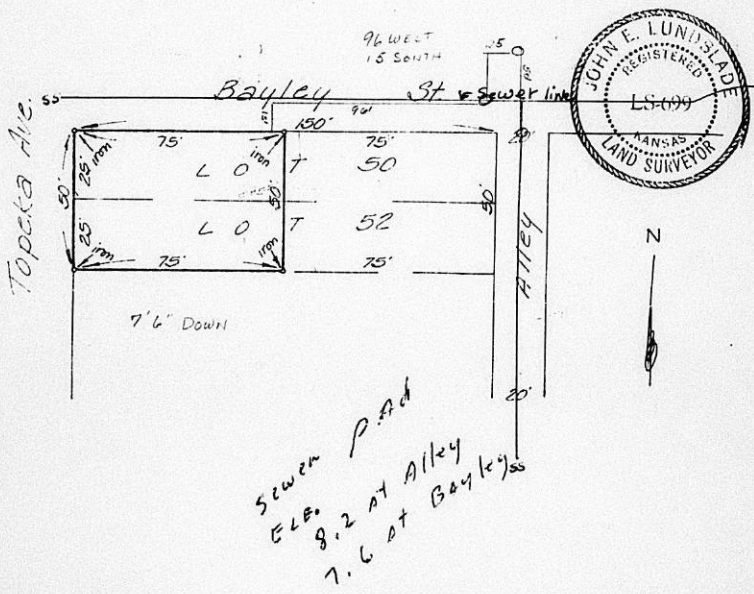 96 WEST
15 SOUTH
25
JOHN E. LUNDBLADE
REGISTERED
LS-699
KANSAS
LAND SURVEYOR
Topeka Ave.
ss
Bayley St. & Sewer line
15'
96'
150'
75'
75'
20'
iron
iron
25'
L O T 50
50'
50'
50'
L O T 52
25'
iron
iron
75'
75'
Alley
N
7'6" DOWN
20'
ss
Sewer
ELE.
8.2 AT Alley
7.6 AT Bayley